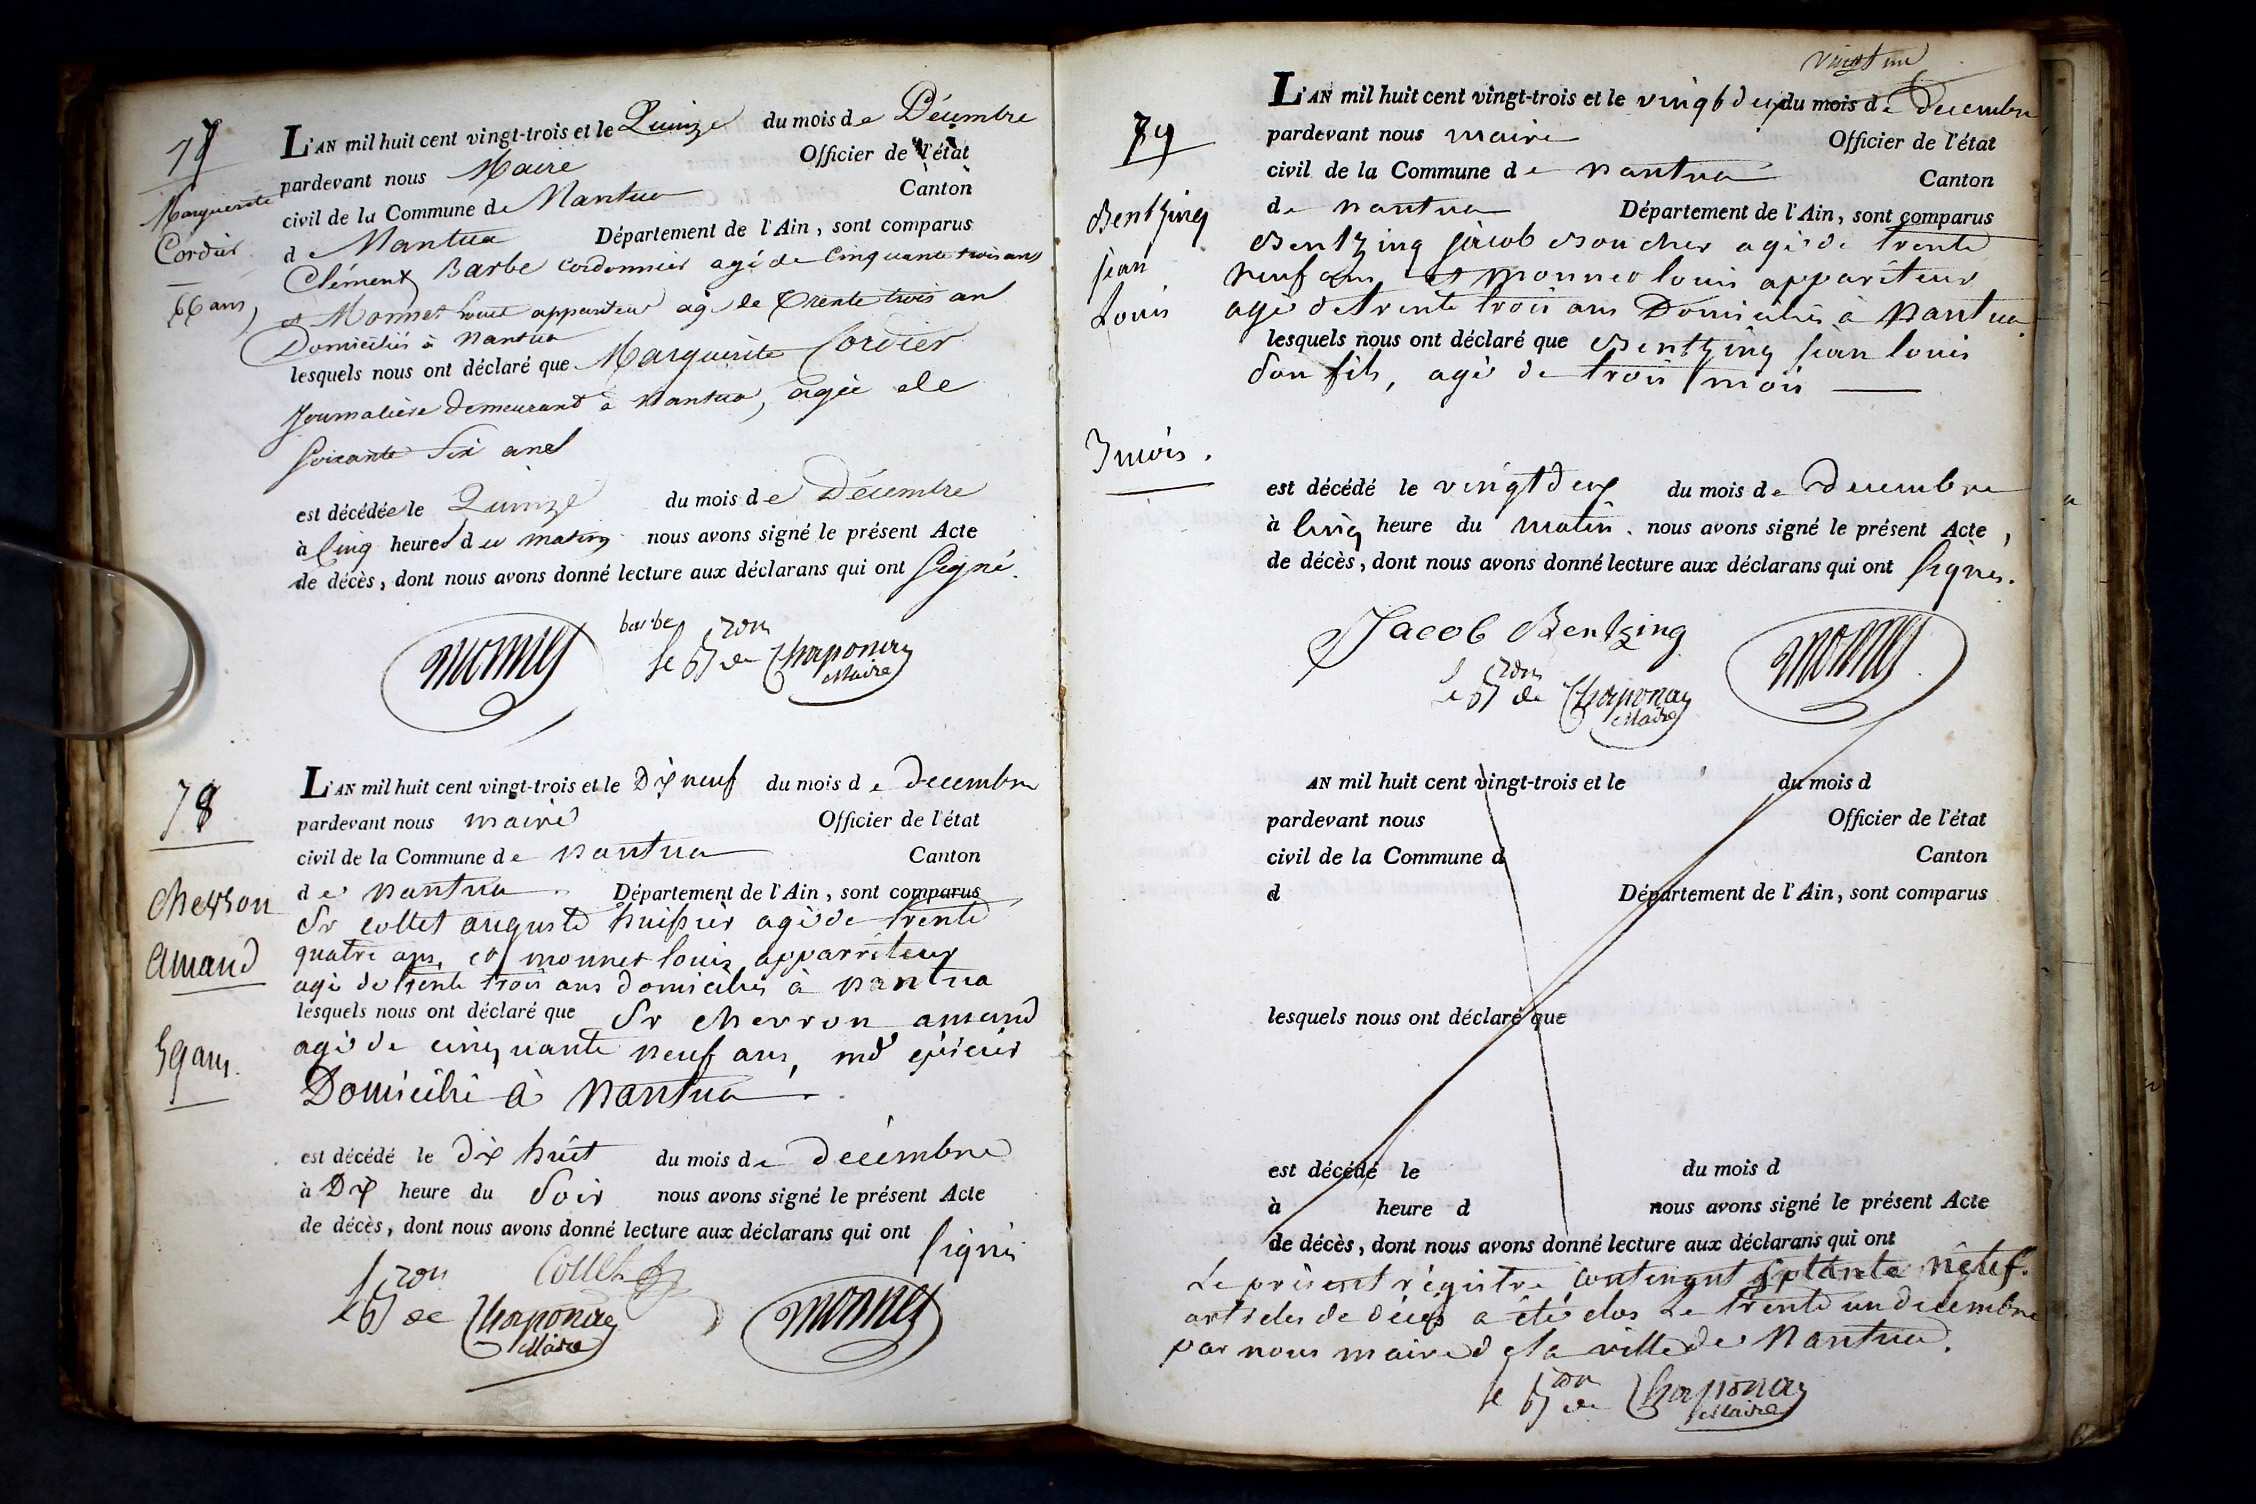 77
Marguerite
Cordier
66 ans,
L'AN mil huit cent vingt-trois et le Quinze du mois de Décembre
pardevant nous Maire Officier de l'état
civil de la Commune de Nantua Canton
de Nantua Département de l'Ain, sont comparus
Clément Barbe Cordonnier agé de Cinquante trois ans
et Monnet Louis appariteur agé de Trente trois ans
Domiciliés à Nantua
lesquels nous ont déclaré que Marguerite Cordier
Journalière demeurant à Nantua, agée de
Soixante Six ans
est décédée le Quinze du mois de Décembre
à Cinq heures du matin nous avons signé le présent Acte
de décès, dont nous avons donné lecture aux déclarans qui ont Signé.
barbe
monnet le Bon de Chaponay
Maire
78
Chevron
Amand
59 ans.
L'AN mil huit cent vingt-trois et le Dix neuf du mois de decembre
pardevant nous maire Officier de l'état
civil de la Commune de nantua Canton
de nantua Département de l'Ain, sont comparus
Sr collet auguste huissier agé de trente
quatre ans, et monnet louis apparriteur
agé de trente trois ans domiciliés à nantua
lesquels nous ont déclaré que Sr chevron amand
agé de cinquante neuf ans, md épicier
Domicilié à Nantua
est décédé le dix huit du mois de décembre
à Dix heure du Soir nous avons signé le présent Acte
de décès, dont nous avons donné lecture aux déclarans qui ont signés
le Bon de Chaponay Collet monnet
Maire
79
Bentzing
jean
Louis
3 mois.
vingt un
L'AN mil huit cent vingt-trois et le vingt deux du mois de decembre
pardevant nous maire Officier de l'état
civil de la Commune de nantua Canton
de nantua Département de l'Ain, sont comparus
Bentzing jacob Boucher agé de trente
neuf ans et monnet louis appariteur
agé de trente trois ans Domiciliés à Nantua
lesquels nous ont déclaré que Bentzing jean louis
Son fils, agé de trois mois
est décédé le vingt deux du mois de decembre
à Cinq heure du matin. nous avons signé le présent Acte,
de décès, dont nous avons donné lecture aux déclarans qui ont signés.
Jacob Bentzing monnet
le Bon de Chaponay
Maire
AN mil huit cent vingt-trois et le du mois d
pardevant nous Officier de l'état
civil de la Commune d Canton
d Département de l'Ain, sont comparus
lesquels nous ont déclaré que
est décédé le du mois d
à heure d nous avons signé le présent Acte
de décès, dont nous avons donné lecture aux déclarans qui ont
Le présent régistre contenant Septante neuf.
articles de décés a été clos Le trente un decembre
par nous maire de la ville de Nantua.
le Bon de Chaponay
Maire